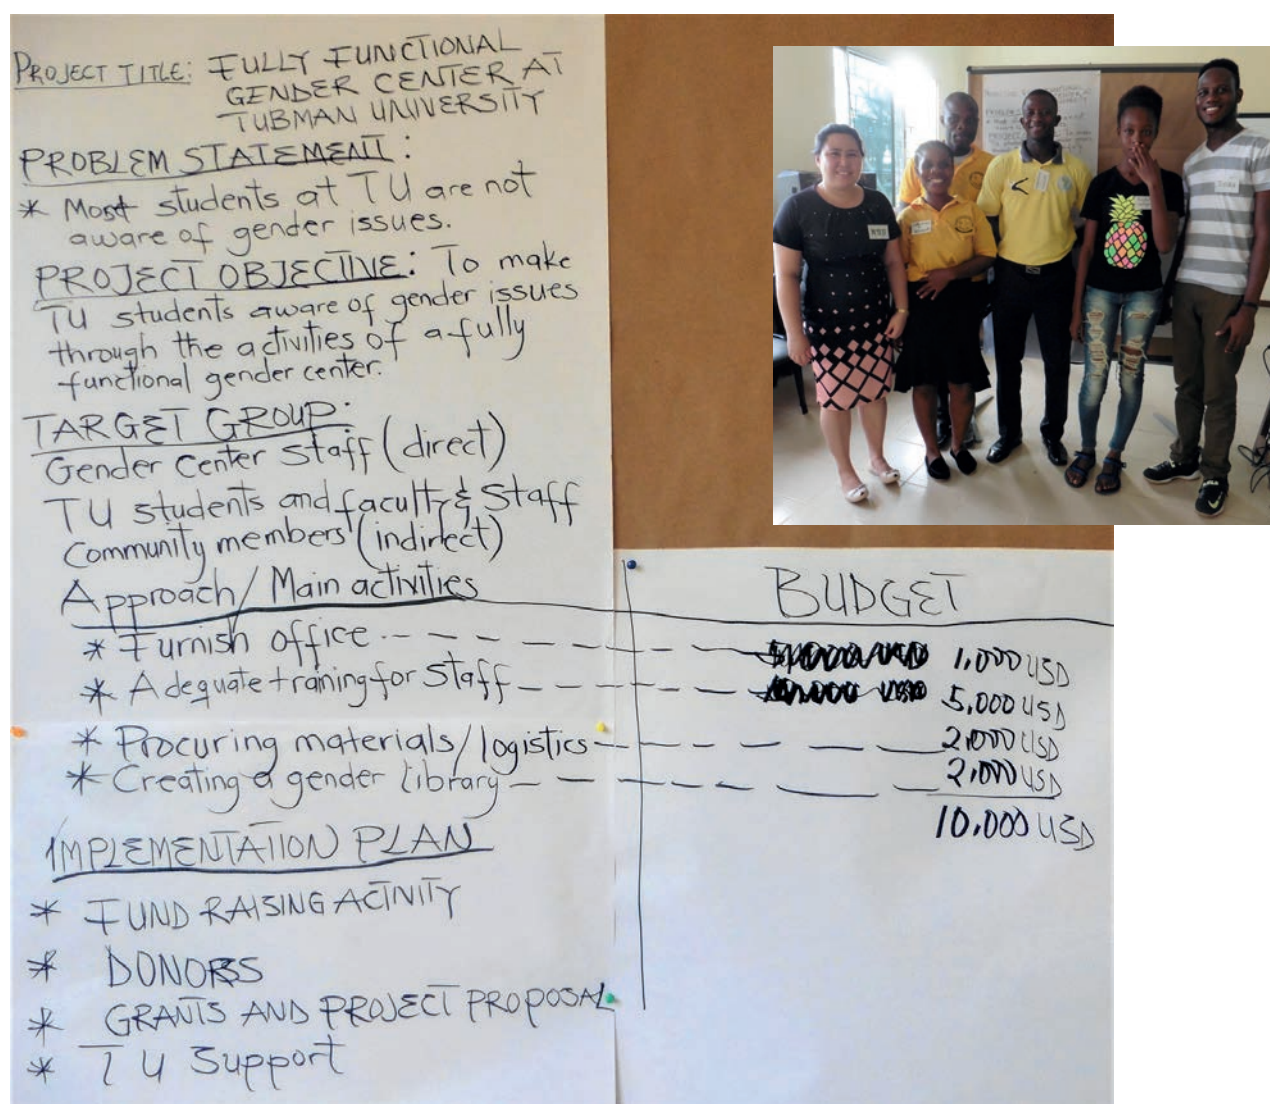 PROJECT TITLE: FULLY FUNCTIONAL
GENDER CENTER AT
TUBMAN UNIVERSITY
PROBLEM STATEMENT:
* Most students at TU are not
aware of gender issues.
PROJECT OBJECTIVE: To make
TU students aware of gender issues
through the activities of a fully
functional gender center.
TARGET GROUP:
Gender Center Staff (direct)
TU students and faculty & Staff
Community members (indirect)
Approach/Main activities
BUDGET
* Furnish office 1,000 USD
* Adequate training for Staff 5,000 USD
* Procuring materials/logistics 2,000 USD
* Creating a gender library 2,000 USD
10,000 USD
IMPLEMENTATION PLAN
* FUND RAISING ACTIVITY
* DONORS
* GRANTS AND PROJECT PROPOSAL
* TU Support